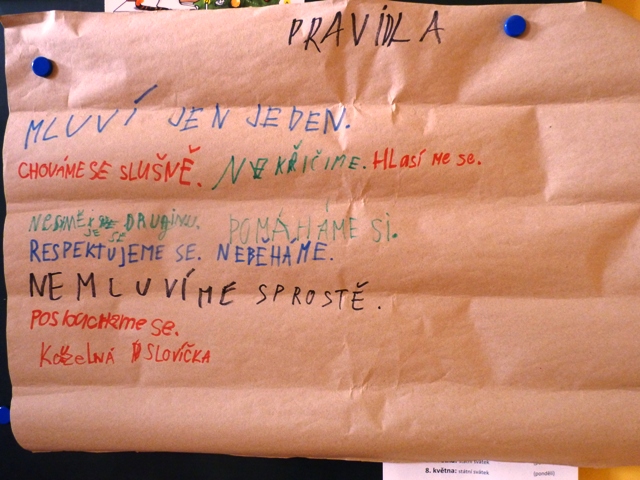 PRAVÍDLA
MLUVÍ JEN JEDEN.
CHOVÁMESE SLUŠNĚ. NEKŘIČÍME. HLASÍ ME SE.
DRUŽINU. POMÁHÁME SI.
RESPEKTUJEME SE. NEBĚHÁME.
NEMLUVÍME SPROSTĚ.
POSLOUCHEME SE.
SLOVÍČKA
8. května: státní svátek
(pondělí)